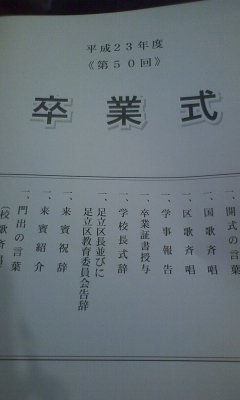 平成23年度
《第50回》
卒業式
一、開式の言葉
一、国歌斉唱
一、区歌斉唱
一、学事報告
一、卒業証書授与
一、学校長式辞
一、足立区長並びに
足立区教育委員会告辞
一、来賓祝辞
一、来賓紹介
一、門出の言葉
(校歌斉唱